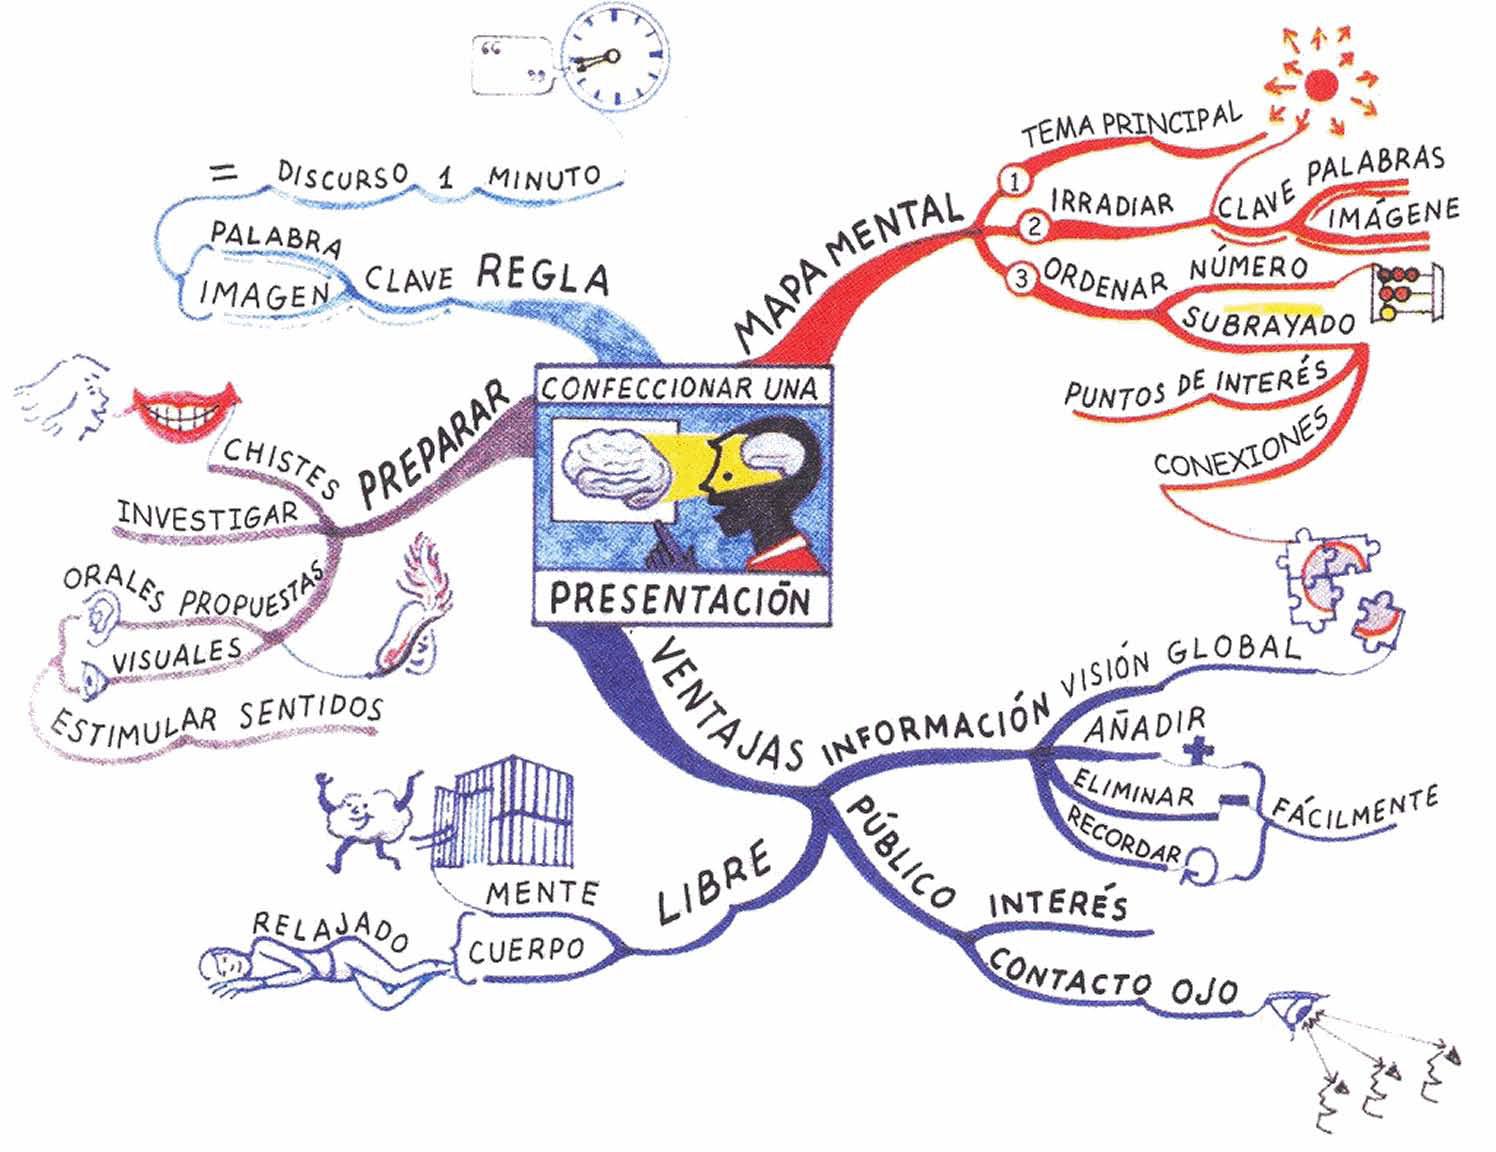 CONFECCIONAR UNA
PRESENTACIÓN
MAPA MENTAL
1
TEMA PRINCIPAL
2
IRRADIAR
CLAVE
PALABRAS
IMÁGENE
3
ORDENAR
NÚMERO
SUBRAYADO
PUNTOS DE INTERÉS
CONEXIONES
VENTAJAS
INFORMACIÓN
VISIÓN GLOBAL
AÑADIR
+
ELIMINAR
-
RECORDAR
FÁCILMENTE
PÚBLICO
INTERÉS
CONTACTO OJO
LIBRE
MENTE
CUERPO
RELAJADO
PREPARAR
CHISTES
INVESTIGAR
PROPUESTAS
ORALES
VISUALES
ESTIMULAR SENTIDOS
REGLA
CLAVE
PALABRA
IMAGEN
= DISCURSO 1 MINUTO
“ ”